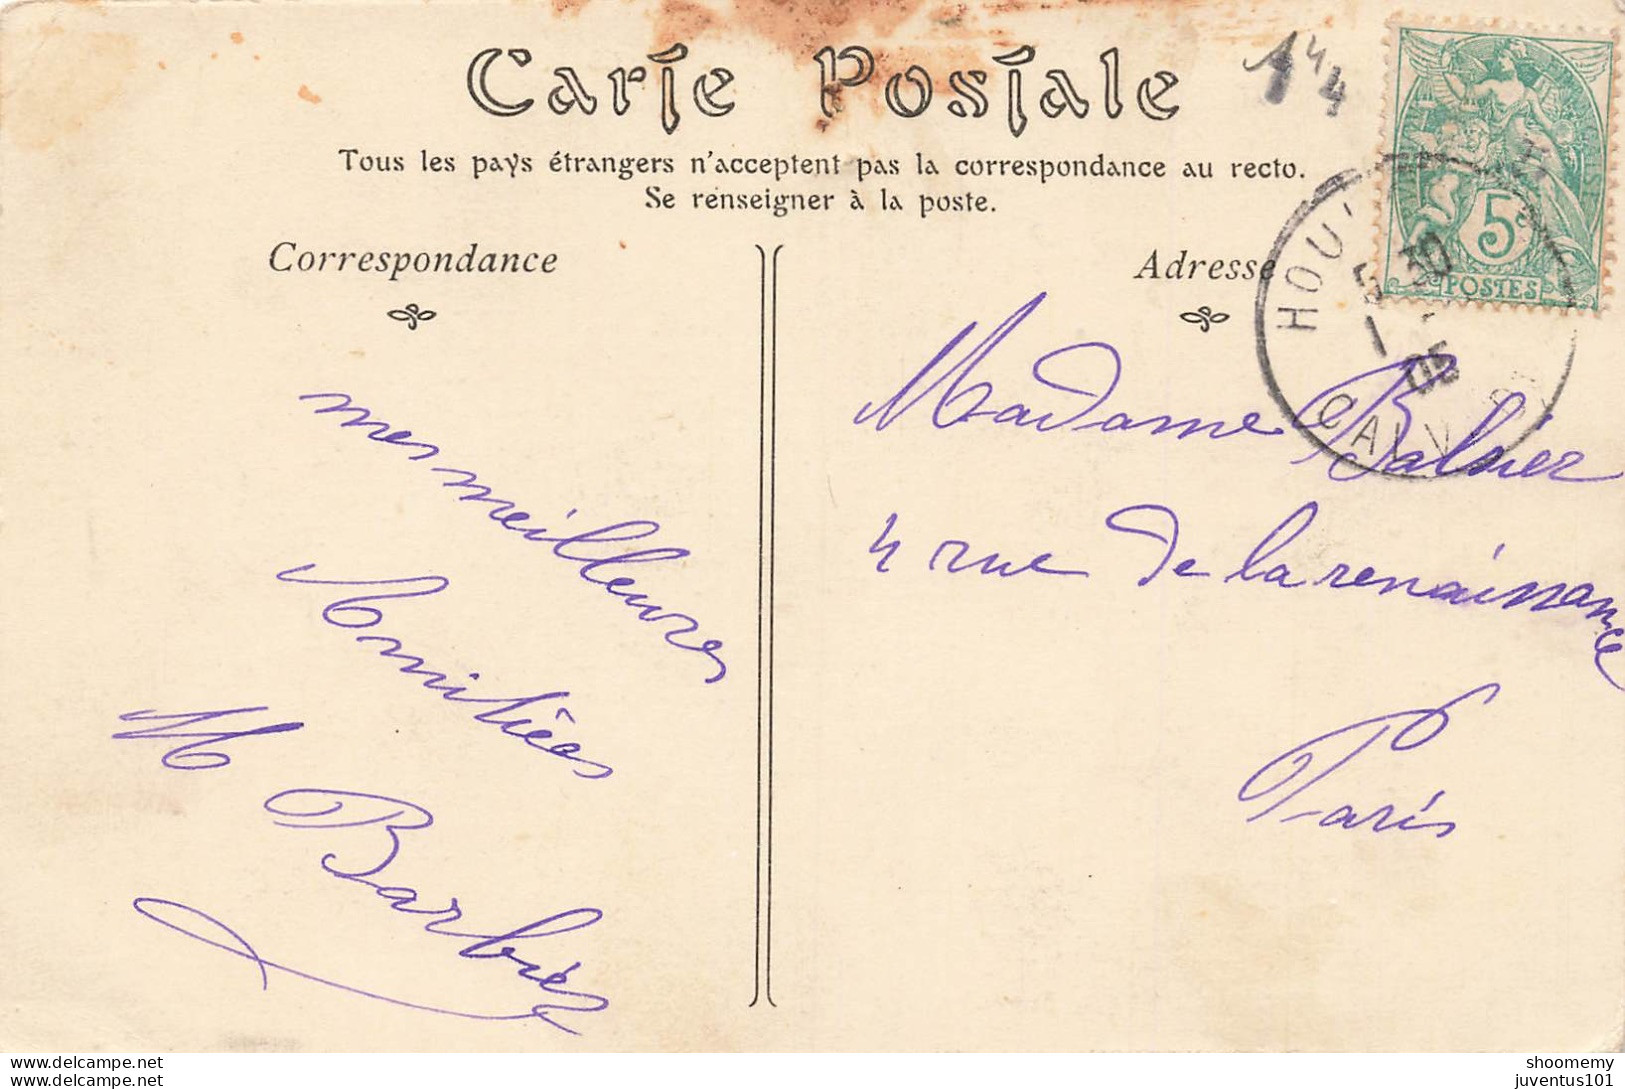 Carte Postale
144
Tous les pays étrangers n'acceptent pas la correspondance au recto.
Se renseigner à la poste.
Correspondance
mes meilleures
Amitiées
M Barbier
Adresse
Madame Balnier
4 rue de la renaissance
Paris
5c
POSTES
HOU
5 30
1
05
CALV
delcampe.net
delcampe.net
shoomemy
juventus101